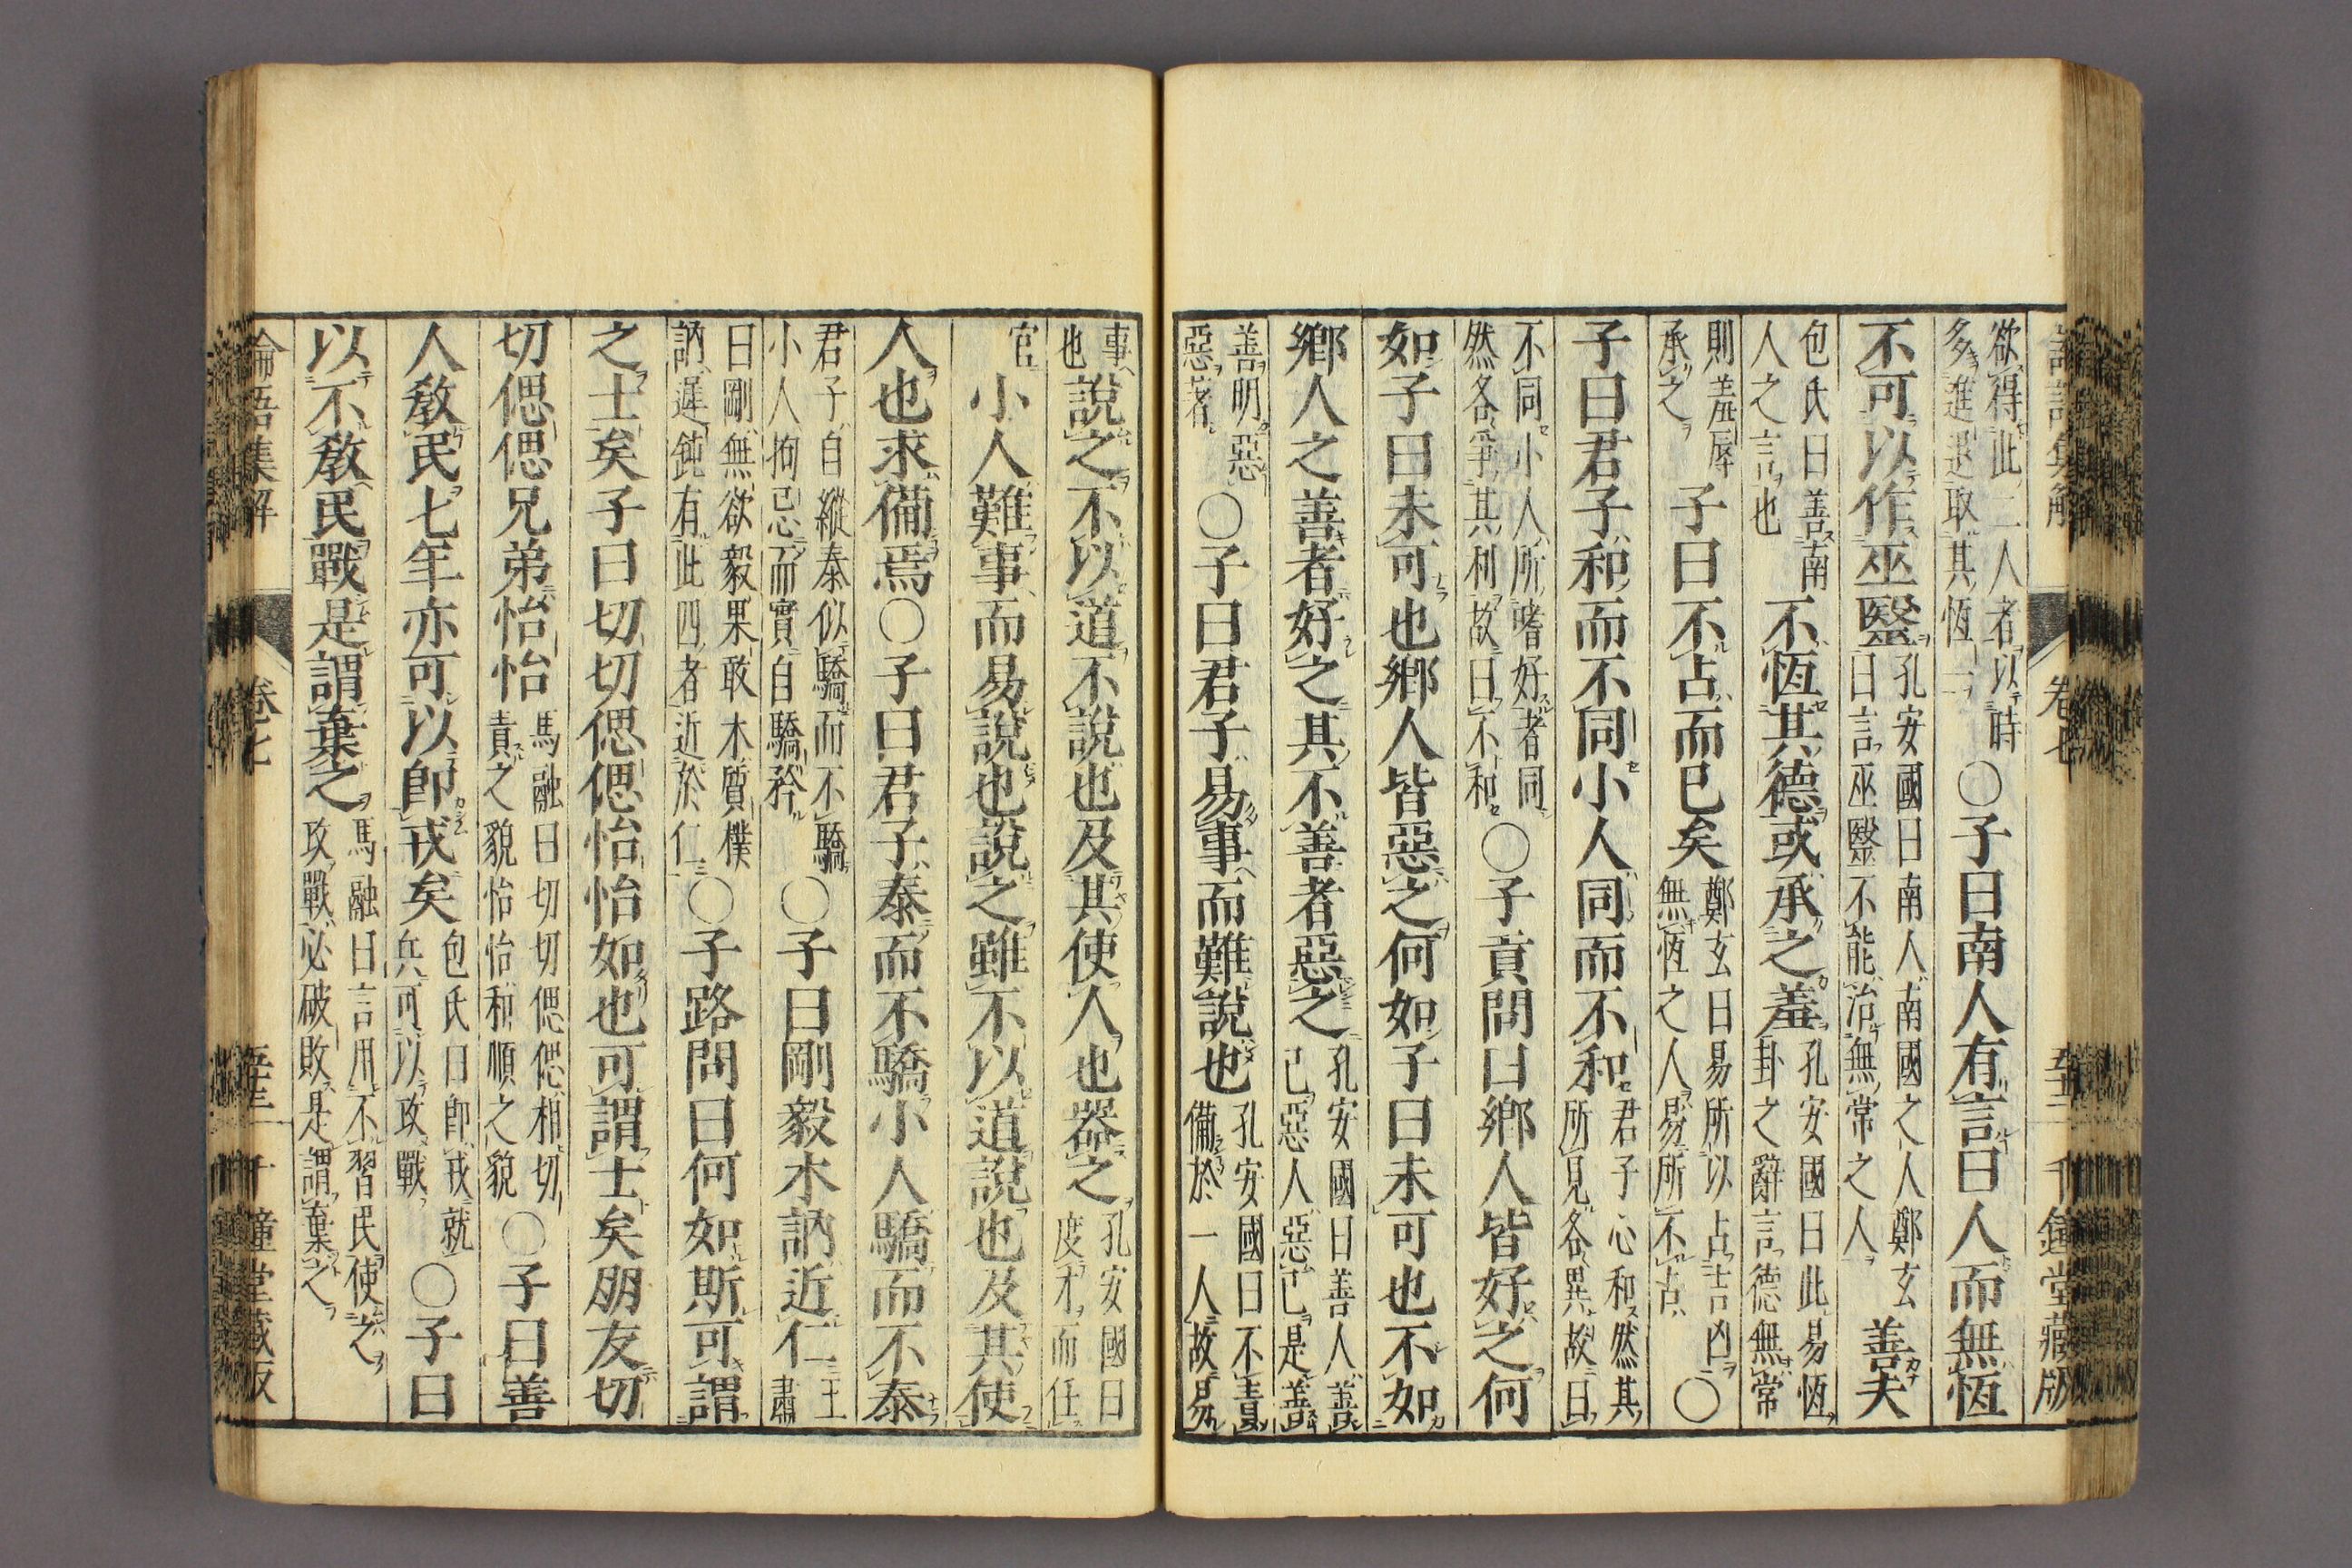 論語集解　卷七　千鍾堂藏版
欲得此二人者以時多進退取其恆一〇子曰南人有言曰人而無恆
不可以作巫醫孔安國曰南人南國之人鄭玄曰言巫醫不能治無常之人善夫
包氏曰善南人之言也不恆其德或承之羞孔安國曰此易恆卦之辭言德無常
則羞辱承之子曰不占而已矣鄭玄曰易所以占吉凶無恆之人易所不占〇
子曰君子和而不同小人同而不和君子心和然其所見各異故曰
不同小人所嗜好者同然各爭其利故曰不和〇子貢問曰鄉人皆好之何
如子曰未可也鄉人皆惡之何如子曰未可也不如
鄉人之善者好之其不善者惡之孔安國曰善人善己惡人惡己是善
善明惡惡著〇子曰君子易事而難說也孔安國曰不責備於一人故易
事也說之不以道不說也及其使人也器之孔安國曰度才而任
官小人難事而易說也說之雖不以道說也及其使
人也求備焉〇子曰君子泰而不驕小人驕而不泰
君子自縱泰似驕而不驕小人拘忌而實自驕矜〇子曰剛毅木訥近仁王肅
曰剛無欲毅果敢木質樸訥遲鈍有此四者近於仁〇子路問曰何如斯可謂
之士矣子曰切切偲偲怡怡如也可謂士矣朋友切
切偲偲兄弟怡怡馬融曰切切偲偲相切責之貌怡怡和順之貌〇子曰善
人敎民七年亦可以卽戎矣包氏曰卽戎就兵可以攻戰〇子曰
以不敎民戰是謂棄之馬融曰言用不習民使之攻戰必破敗是謂棄之
論語集解　卷七　千鍾堂藏版